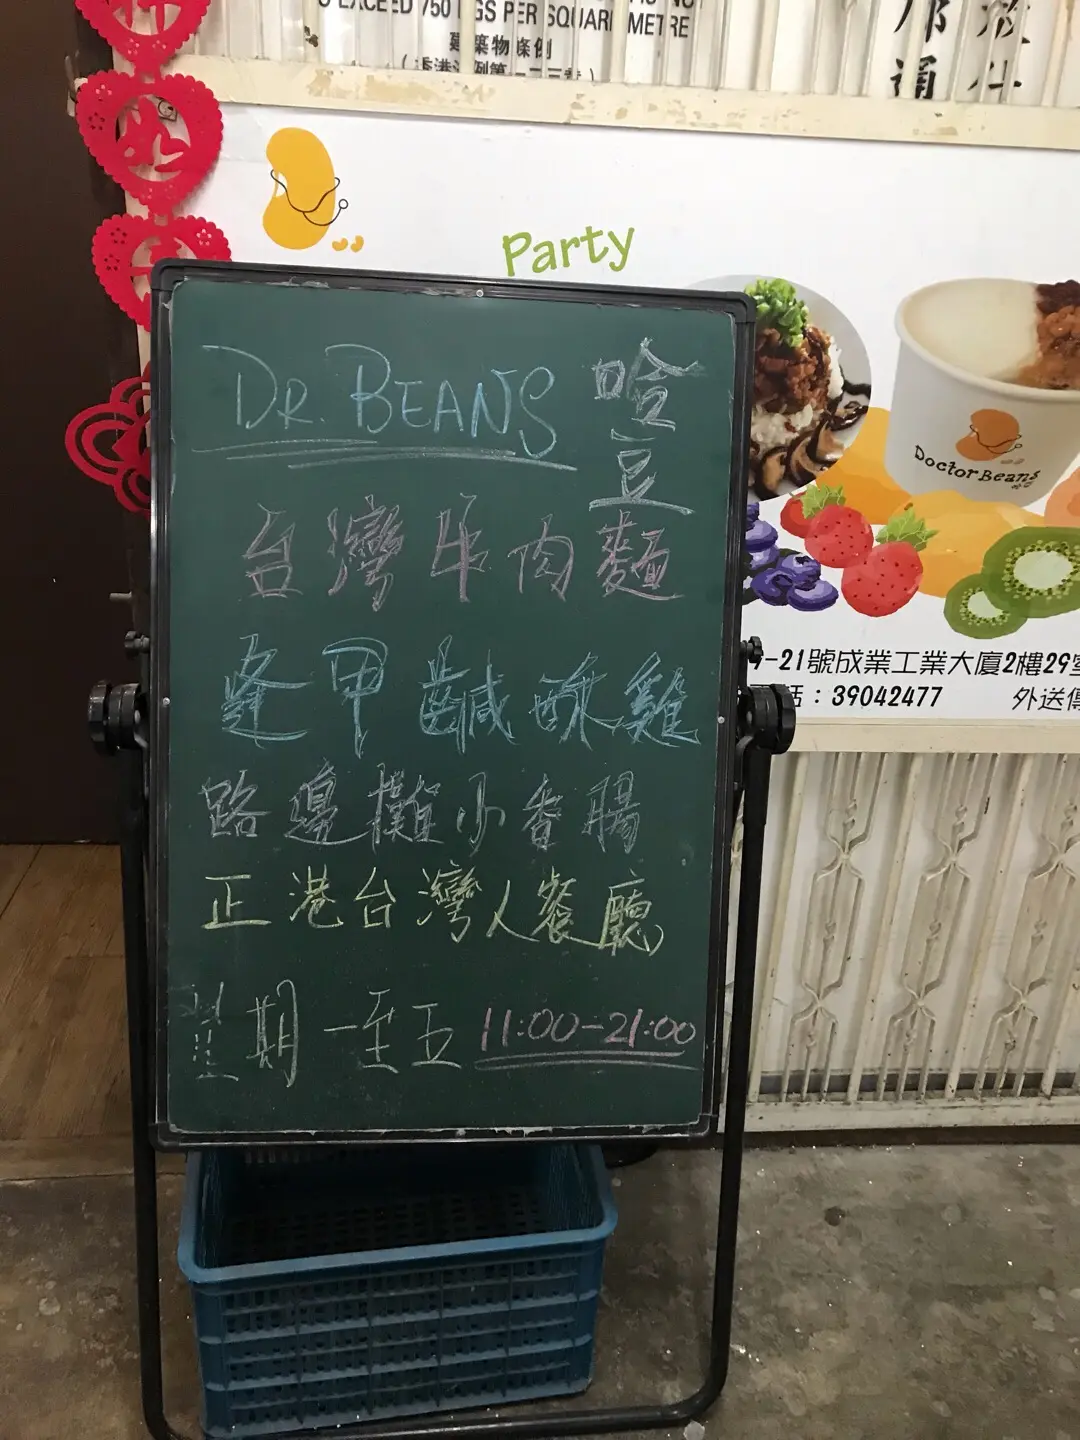 EXCEED 750 KGS PER SQUARE METRE
建築物條例
Party
DR. BEANS
哈豆
台灣牛肉麵
逢甲鹹酥雞
路邊攤小香腸
正港台灣人餐廳
星期一至五 11:00-21:00
Doctor Beans
-21號成業工業大廈2樓29室
話：39042477
外送